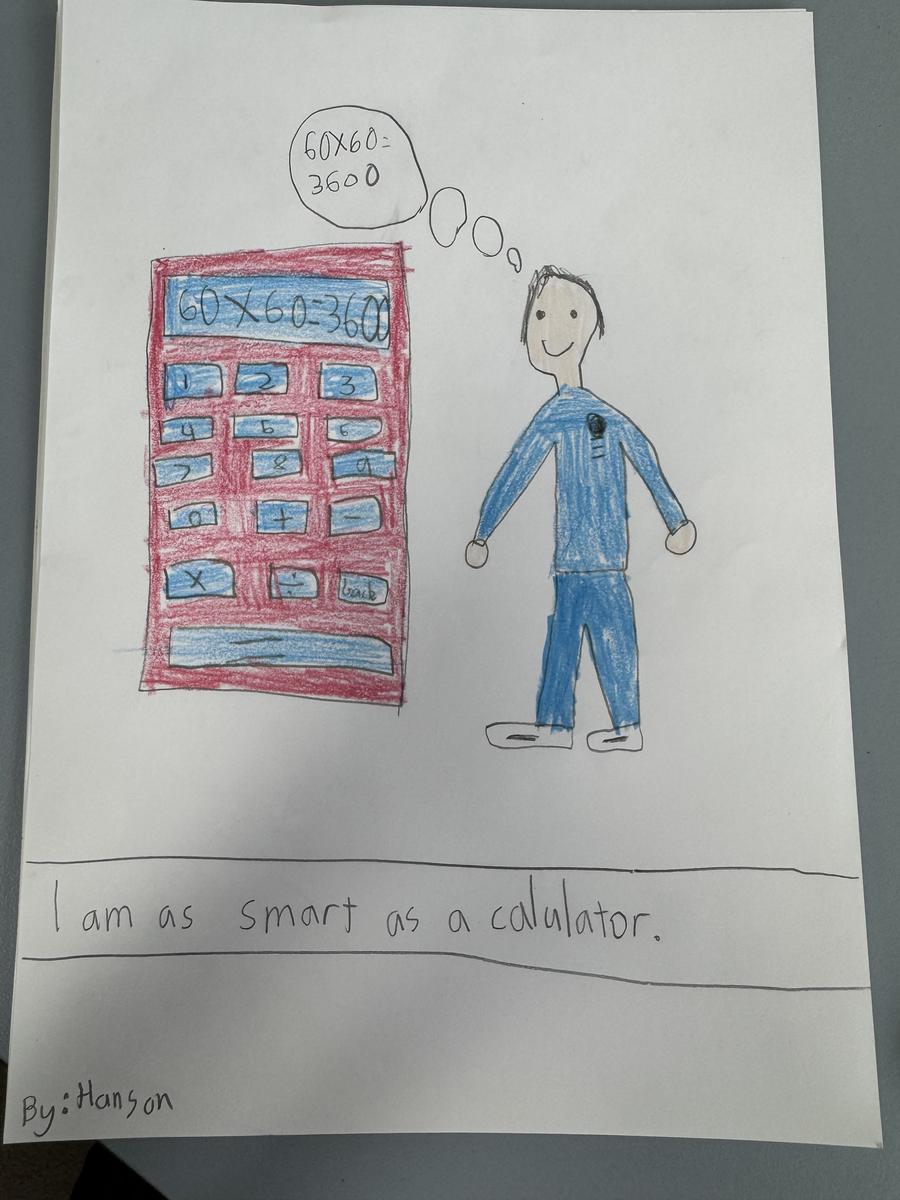 60X60=
3600
60X60=3600
1 2 3
4 5 6
7 8 9
0 + -
X ÷ back
=
I am as smart as a calulator.
By: Hanson